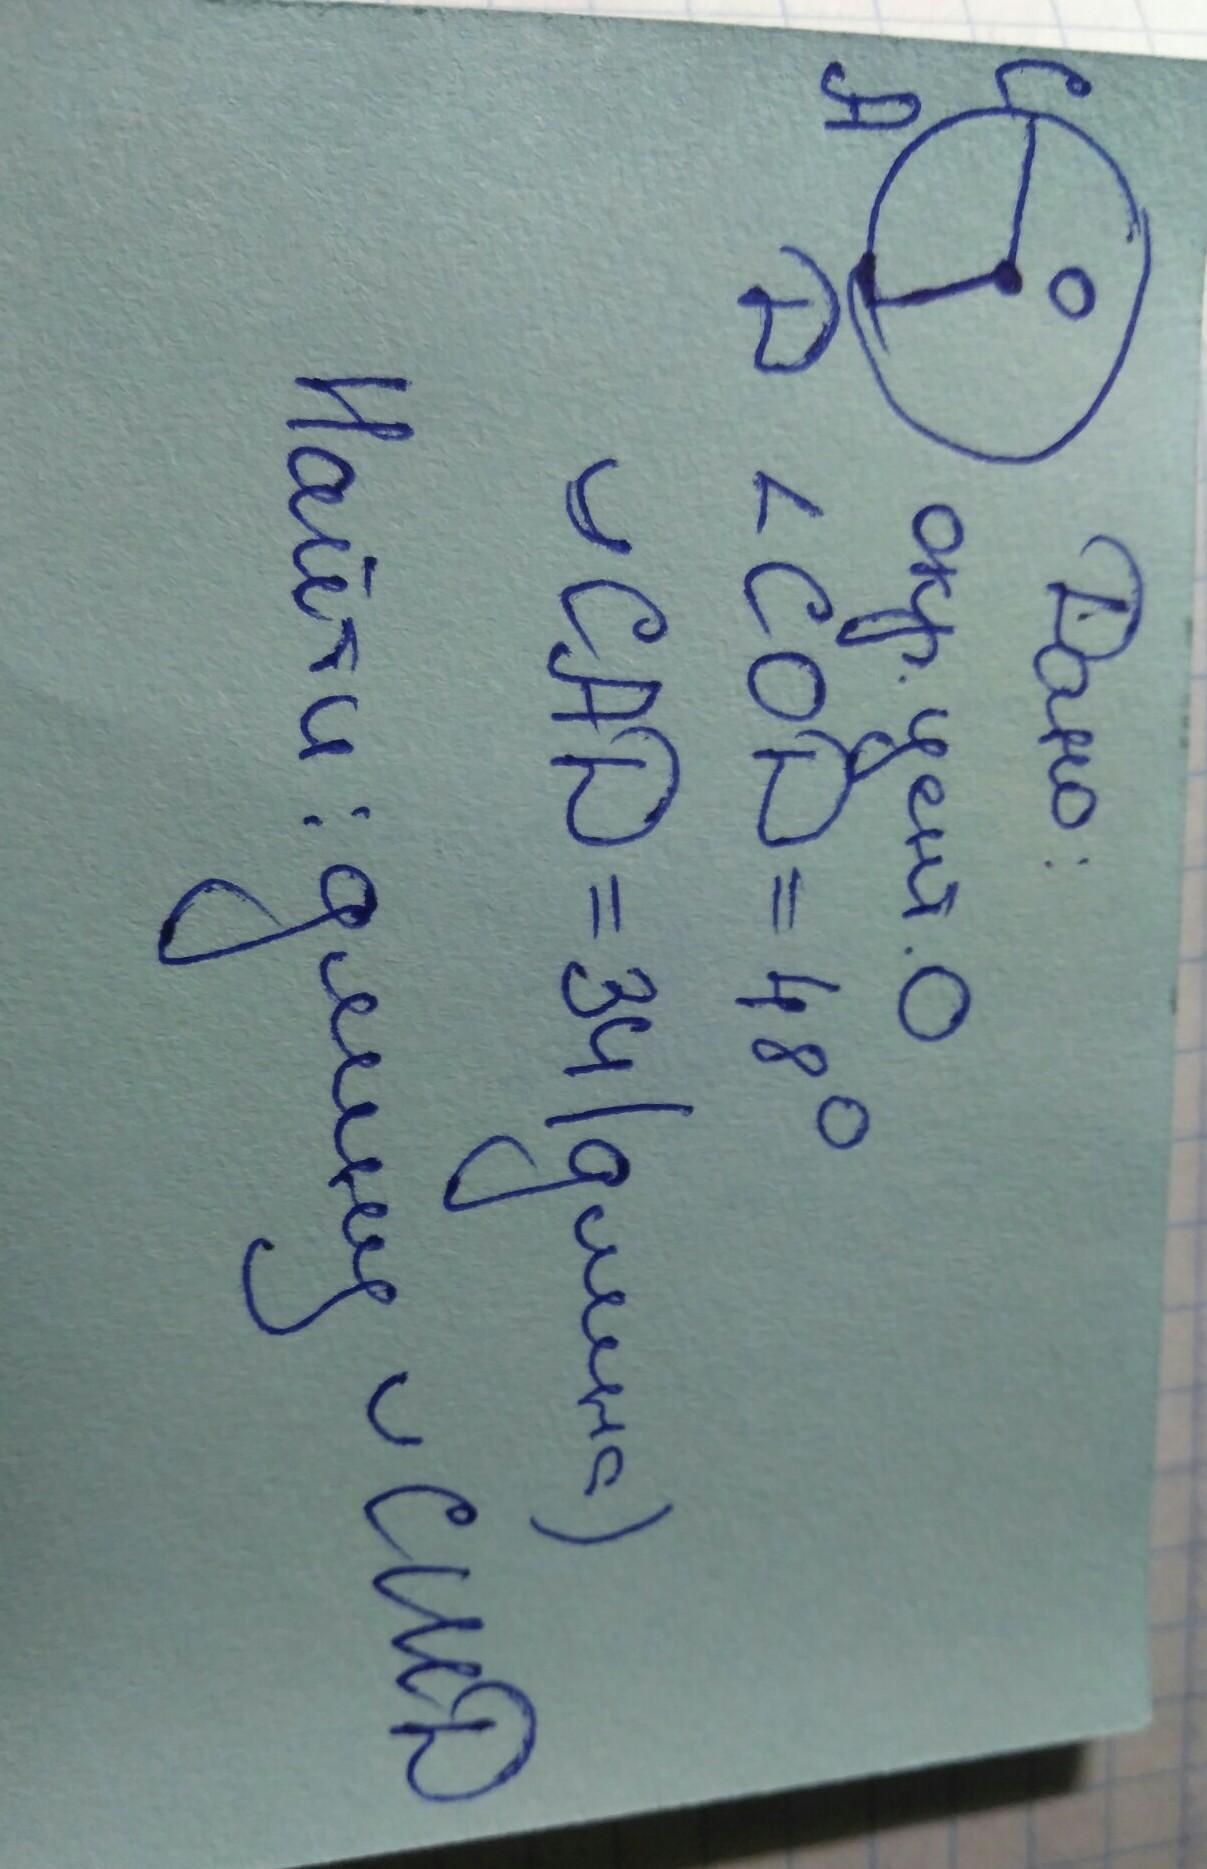 C
A
O
D
Дано:
окр. цент. O
<COD = 48°
◡CAD = 34 (длина)
Найти: длину ◡CMD